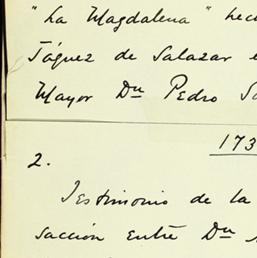 "La Magdalena" hec
Táguez de Salazar e
Mayor Dn Pedro Sa
173
2.
Testimonio de la
sacción entre Dn